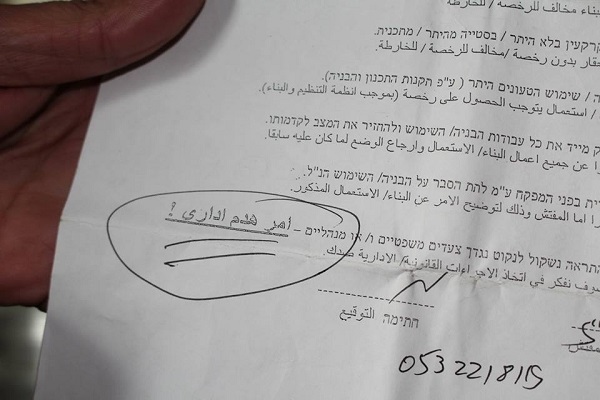 بناء مخالف للرخصة / للخارطة
קרקעין בלא היתר / בסטייה מהיתר / מתכנית.
بدون رخصة /مخالف للرخصة / للخارطة.
/ שימוש הטעונים היתר ( ע"פ תקנות התכנון והבניה).
/ استعمال يتوجب الحصول على رخصة (بموجب انظمة التنظيم والبناء).
מייד את כל עבודות הבניה/ השימוש ולהחזיר את המצב לקדמותו.
عن جميع اعمال البناء/ الاستعمال وارجاع الوضع لما كان عليه سابقا.
בפני המפקח ע"מ לתת הסבר על הבניה/ השימוש הנ"ל.
اما المفتش وذلك لتوضيح الامر عن البناء/ الاستعمال المذكور.
התראה נשקול לנקוט נגדך צעדים משפטיים ו/ או מנהליים – أمر هدم اداري ?
سوف نفكر في اتخاذ الاجراءات القانونية/ الادارية ضدك.
חתימה التوقيع